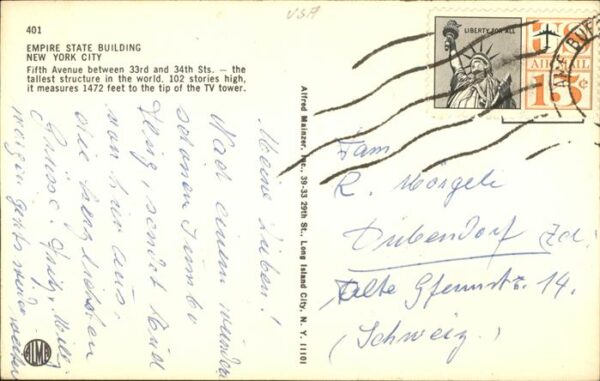 USA
401
EMPIRE STATE BUILDING
NEW YORK CITY
Fifth Avenue between 33rd and 34th Sts. — the
tallest structure in the world. 102 stories high,
it measures 1472 feet to the tip of the TV tower.
Meine Lieben!
Nach einem
schönen
Flug, sendet Euch
von hier aus,
die herzlichsten
Grüsse.
morgen gehts weiter
ALMA
Alfred Mainzer, Inc., 39-33 29th St., Long Island City, N. Y. 11101
LIBERTY FOR ALL
US
AIR MAIL
15¢
Fam
R. Mörgeli
Dübendorf Zch.
Alte Gfennstr. 14.
(Schweiz)